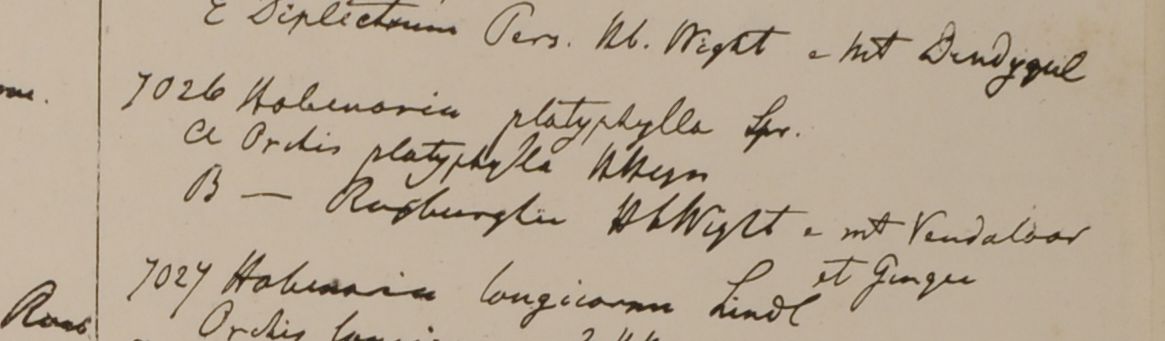 E Diplectrum Pers. Hb. Wight e mt Dindygul
7026 Habenaria platyphylla Spr.
a Orchis platyphylla HHeyn
B — Roxburghii HbWight e mt Vendaloor
et Gingee
7027 Habenaria longicornu Lindl
Roxb
Orchis